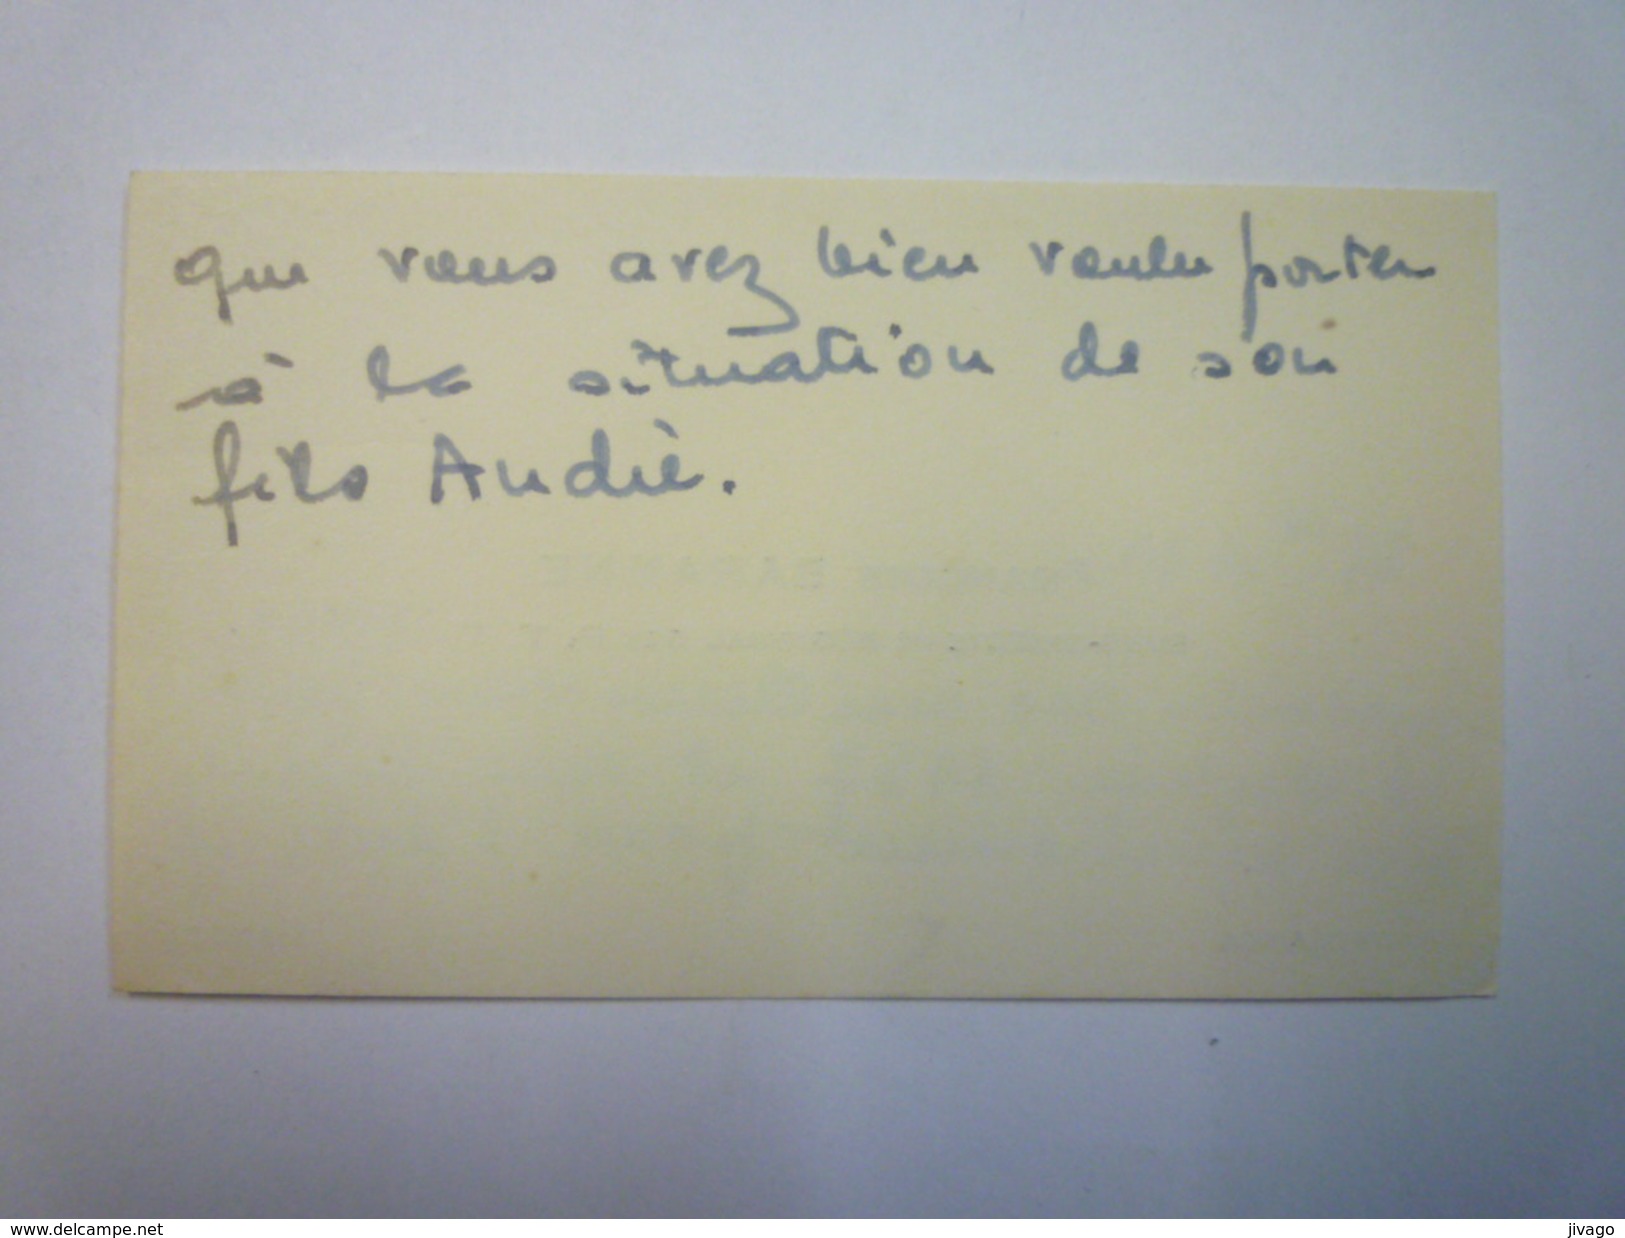 que vous avez bien voulu porter
à la situation de son
fils André.
www.delcampe.net
jivago